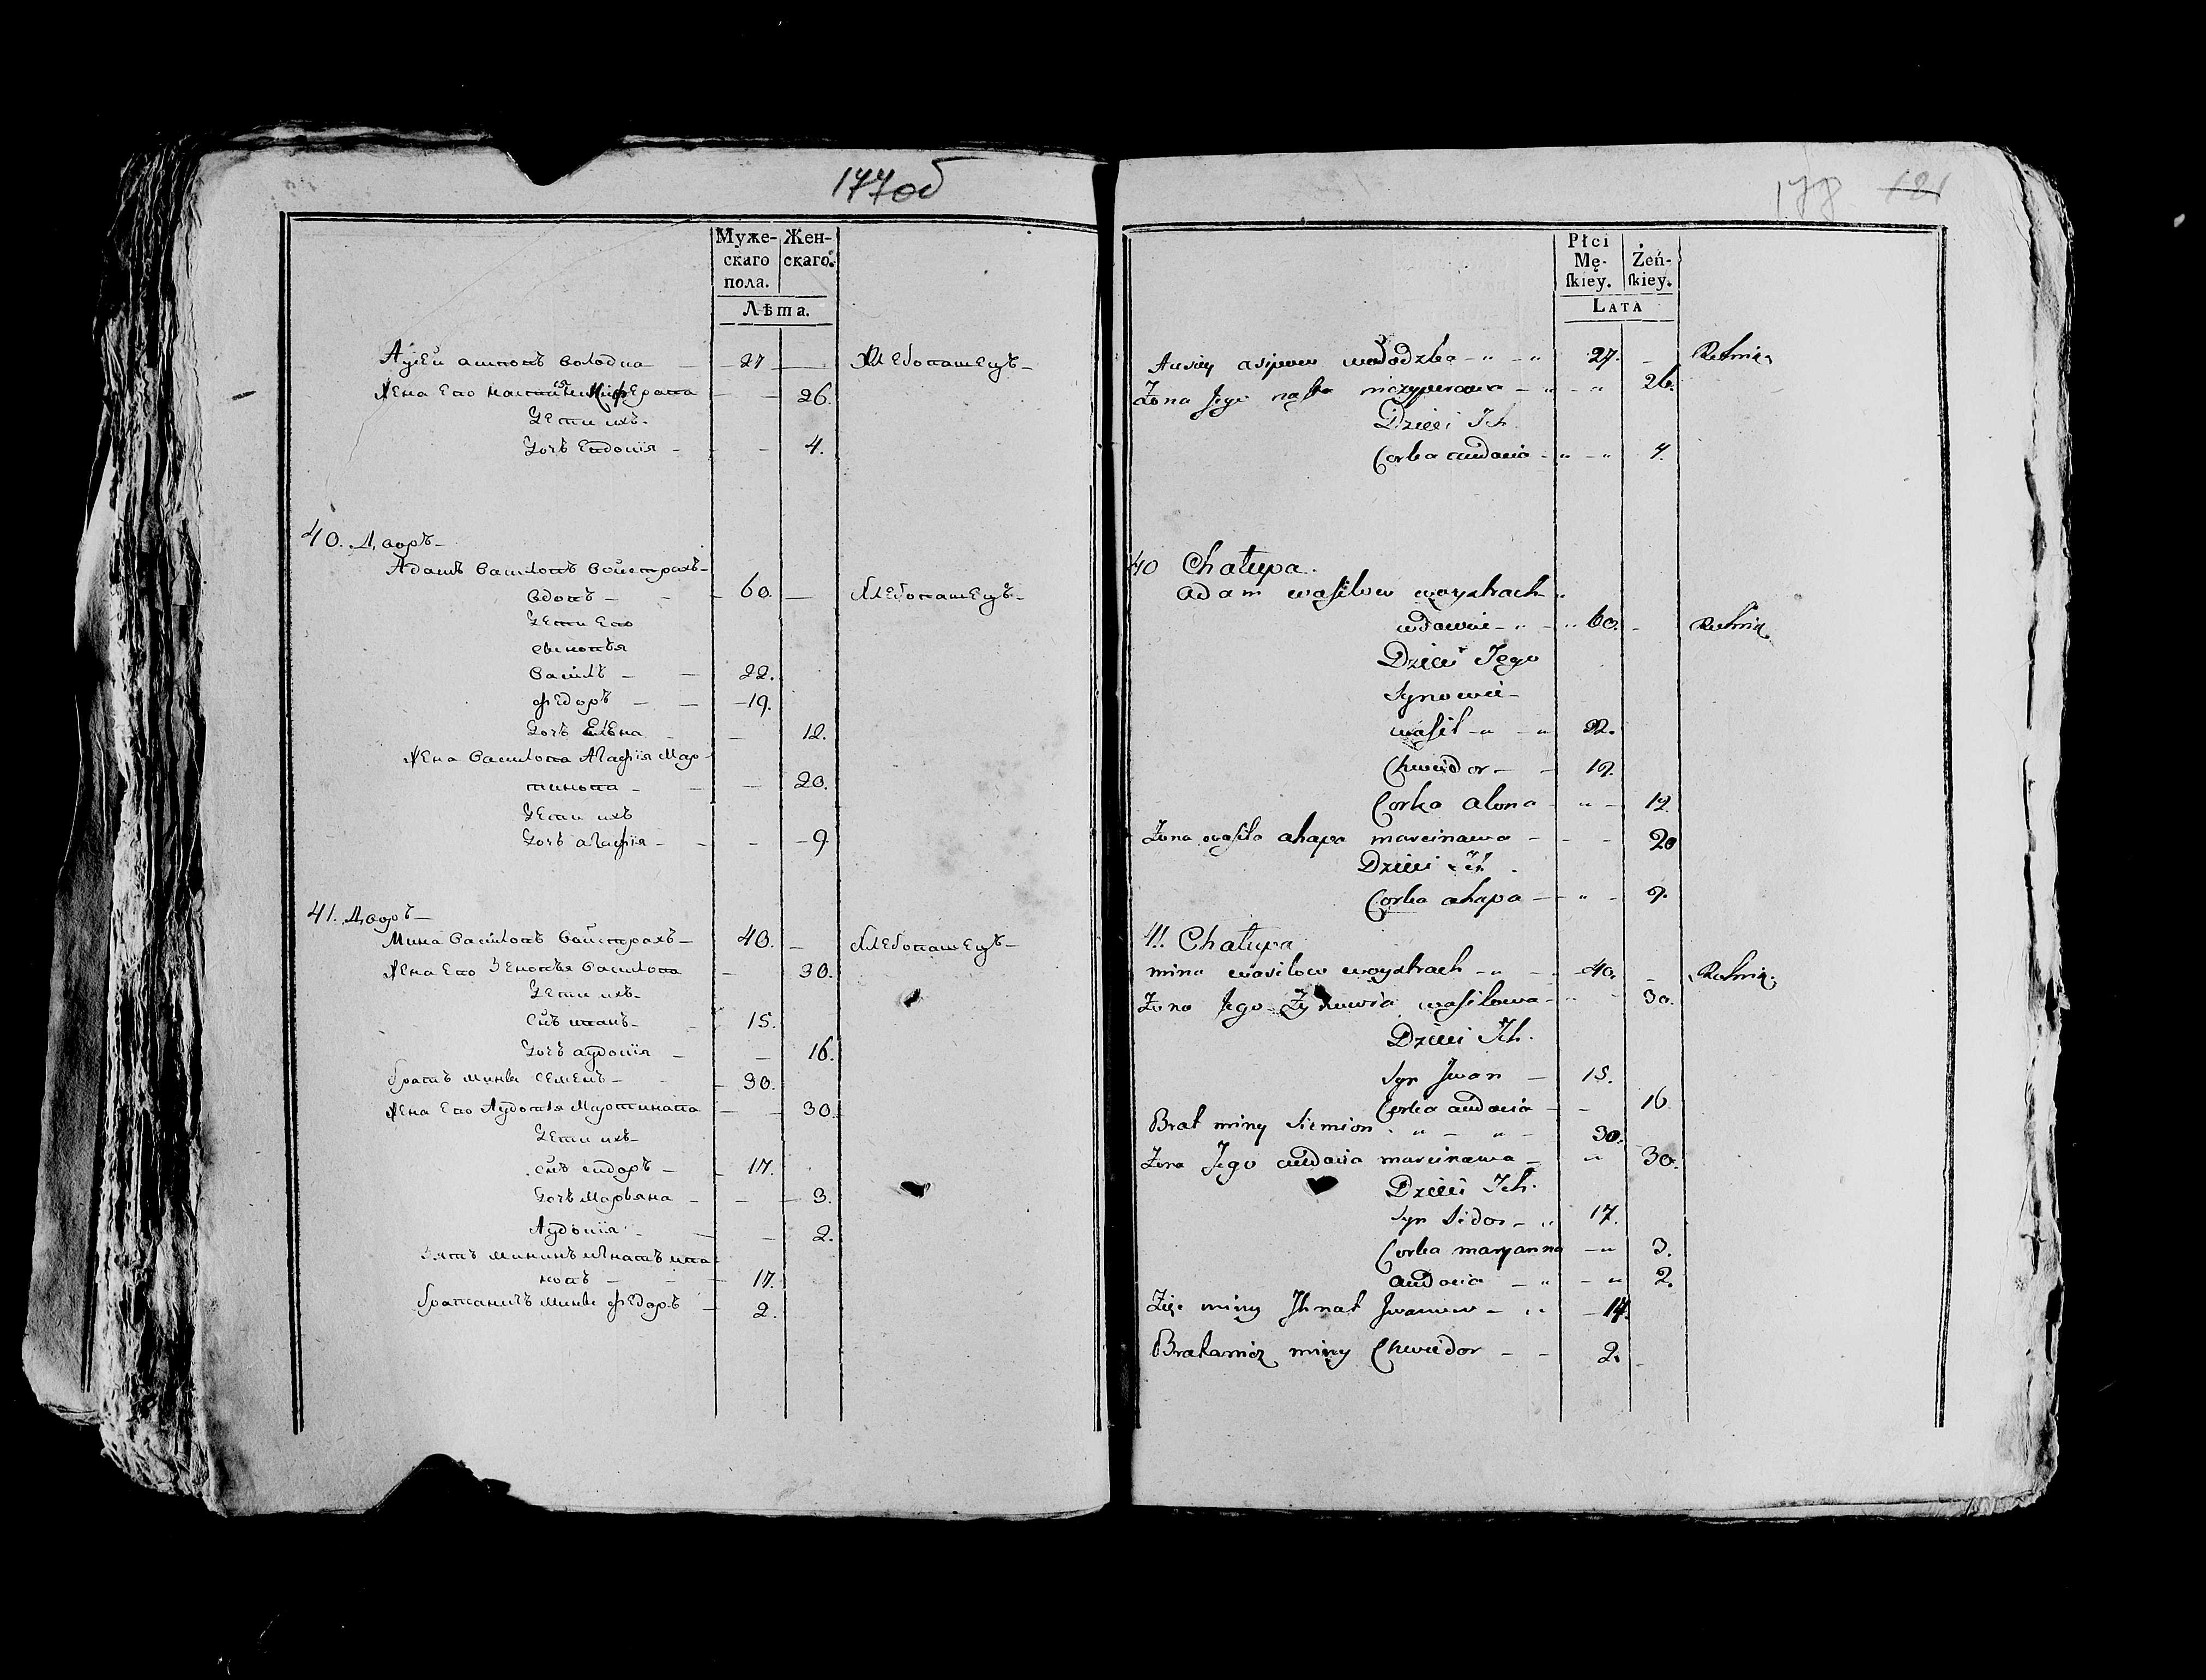 177об
Муже-
скаго
пола.
Жен-
скаго.
Лѣта.
Аѵсей асиповъ володка — 27 — Хлебопашецъ —
Жена Его настя Ничиперова — — 26.
Дети ихъ.
Дочь Евдокiя — — 4.
40. Дворъ —
Адамъ Василовъ Войстрахъ —
вдовъ — — 60. — Хлебопашецъ —
Дети Его
сыновья
Василь — — 22.
Федоръ — — 19.
Дочь Елѣна — 12.
Жена Василова Агафiя Мар-
тинова — — — 20.
Дети ихъ
Дочь агафiя — — — 9.
41. Дворъ —
Мина Василовъ Войстрахъ — 40. — Хлебопашецъ —
Жена Его Зеновья Василова — 30.
Дети ихъ —
Снъ иванъ — — 15.
Дочь аѵдокiя — — 16.
братъ мины Семенъ — — 30.
Жена Его Аудотья Мартинава — — 30.
Дети ихъ —
снъ сидоръ — — 17.
Дочь Марьяна — — — 3.
Аудокiя — — 2.
Зять мининъ игнатъ ива
новъ — — — 17.
братаничъ мины Федоръ — 2.
178 121
Płci
Mę-
ſkiey.
Żeń-
ſkiey.
LATA
Ausiey asipow wołodzka — „ — „ 27. — Rolnik
Żona Jego nasta niczyperowa — „ — „ 26.
Dzieci Ich
Corka audocia — „ — „ 4.
40 Chałupa.
Adam wasilow woystrach „
wdowiec — „ — „ 60. — Rolnik
Dzieci Jego
Synowie —
wasil — „ — „ 22.
Chwiedor — — 19.
Corka alona — „ — 12.
Żona wasila ahapa marcinawa — — — 20
Dzieci Ich.
Corka ahapa — — „ — 9.
41. Chałupa
mina wasilow woystrach — „ — — 40. — Rolnik
Żona Jego Zynowia wasilowa — „ — 30.
Dzieci Ich.
Syn Jwan — 15.
Corka audocia — — 16
Brat miny Siemion . „ — „ — 30.
Żona Jego audocia marcinawa — „ 30.
Dzieci Ich.
Syn Sidor — „ 17.
Corka maryanna — „ 3.
audocia — „ — „ 2.
Zięć miny Jhnat Jwanow — „ — 17.
Bratanicz miny Chwiedor — — 2.